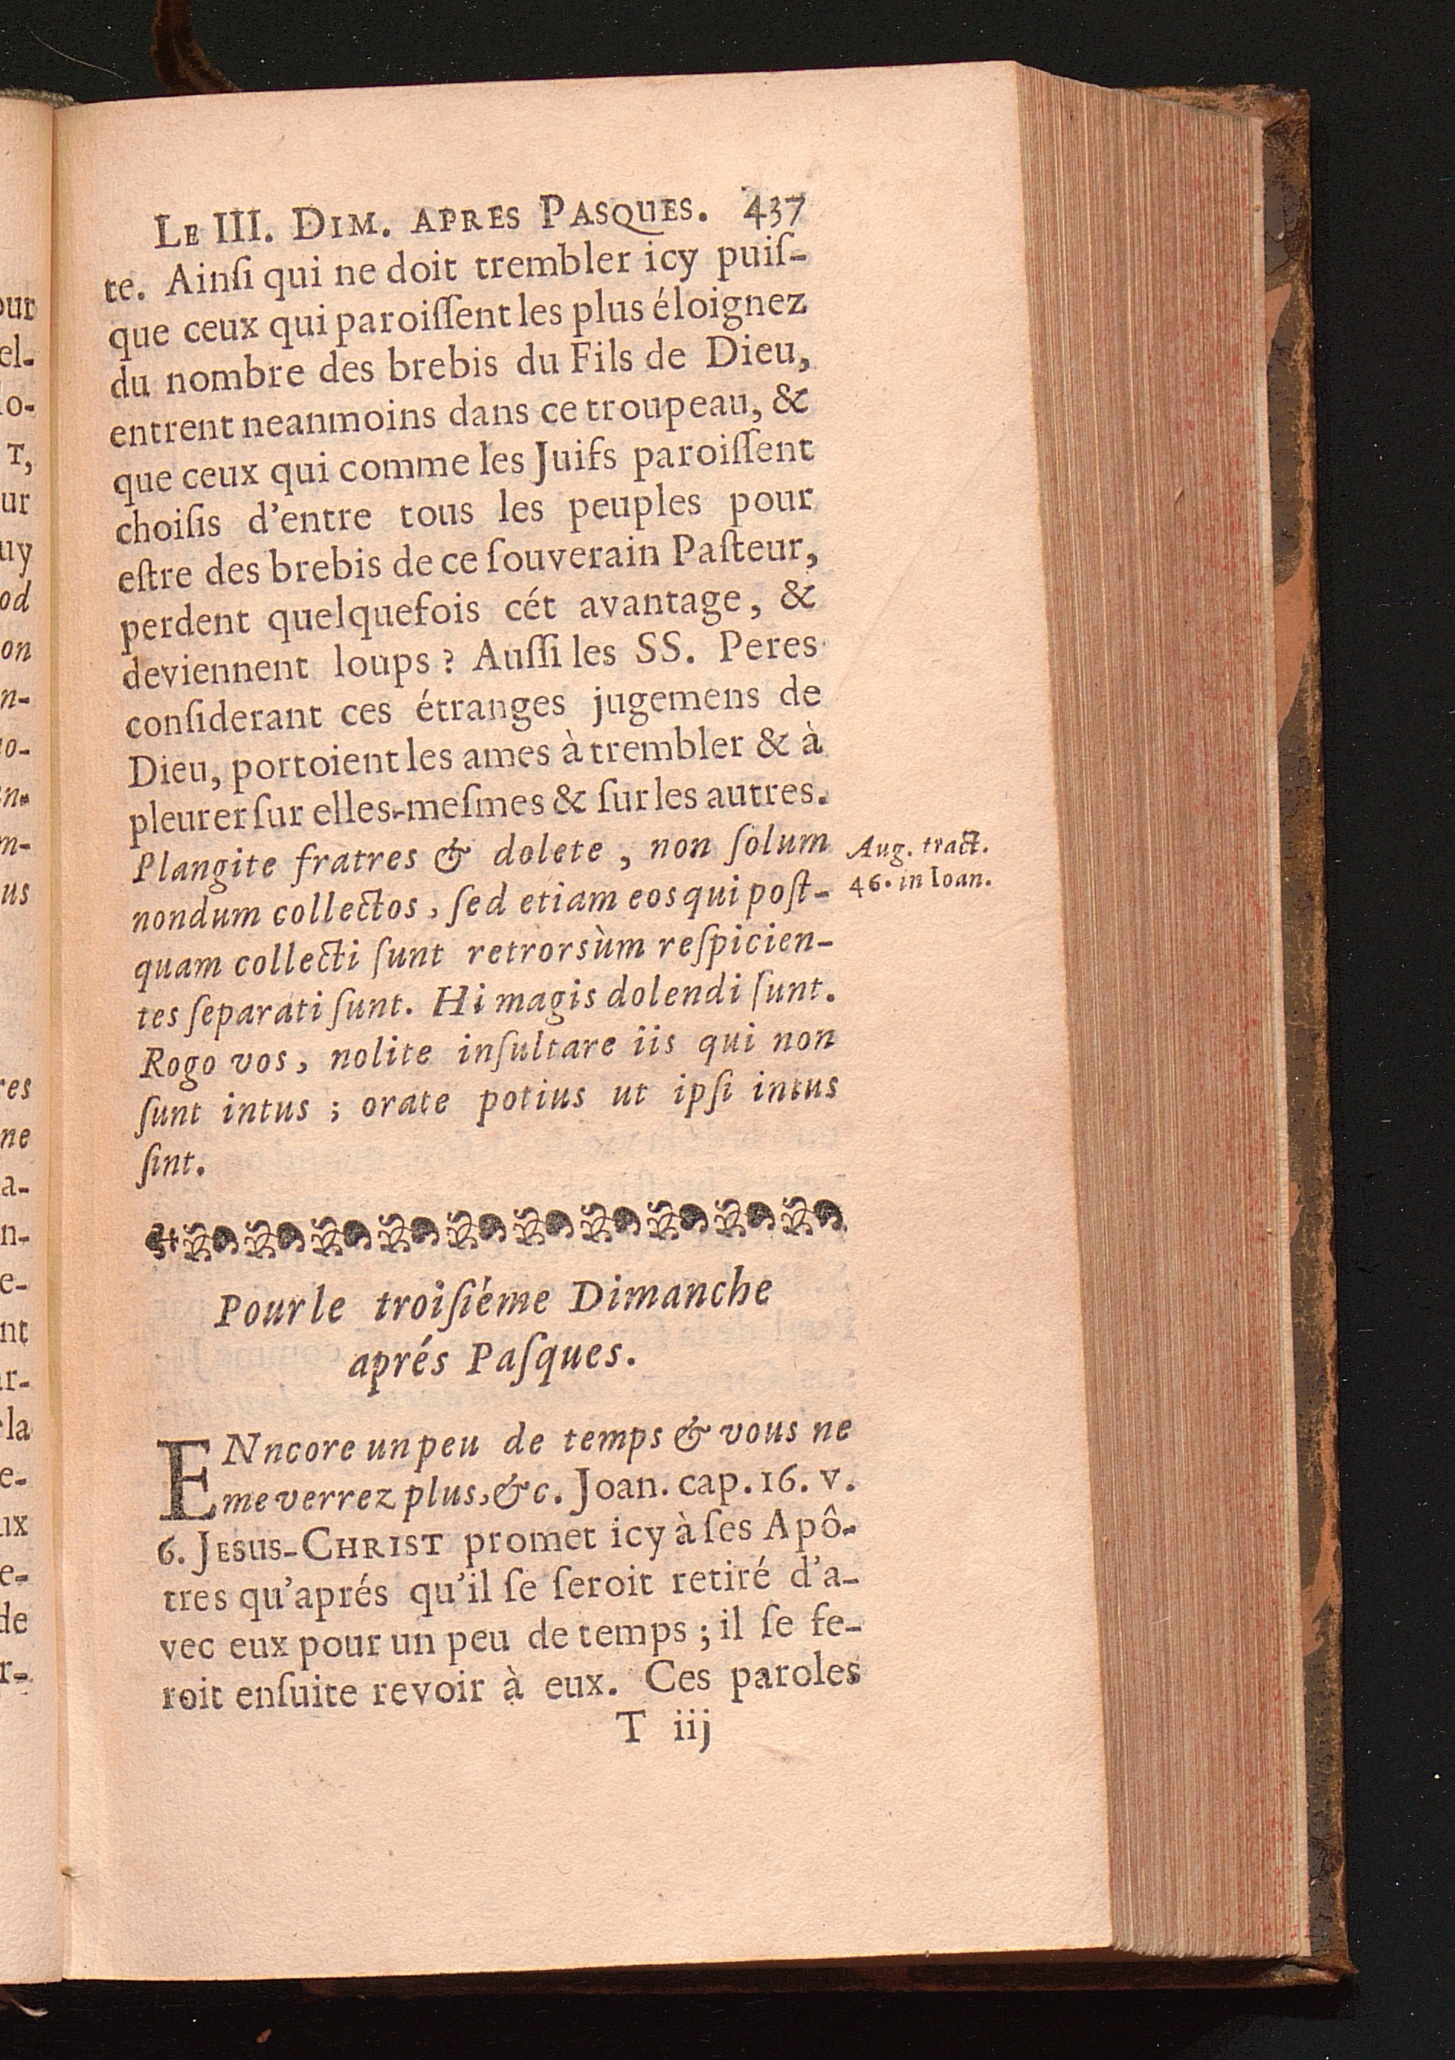 LE III. DIM. APRES PASQUES. 437
te. Ainſi qui ne doit trembler icy puiſ-
que ceux qui paroiſſent les plus éloignez
du nombre des brebis du Fils de Dieu,
entrent neanmoins dans ce troupeau, &
que ceux qui comme les Juifs paroiſſent
choiſis d'entre tous les peuples pour
eſtre des brebis de ce ſouverain Paſteur,
perdent quelquefois cét avantage, &
deviennent loups ? Auſſi les SS. Peres
conſiderant ces étranges jugemens de
Dieu, portoient les ames à trembler & à
pleurer ſur elles-meſmes & ſur les autres.
Plangite fratres & dolete, non ſolum
nondum collectos, ſed etiam eos qui poſt-
quam collecti ſunt retrorsùm reſpicien-
tes ſeparati ſunt. Hi magis dolendi ſunt.
Rogo vos, nolite inſultare iis qui non
ſunt intus ; orate potius ut ipſi intus
ſint.
Aug. tract.
46. in Ioan.
Pour le troiſiéme Dimanche
aprés Paſques.
ENncore un peu de temps & vous ne
me verrez plus, &c. Joan. cap. 16. v.
6. JESUS-CHRIST promet icy à ſes Apô-
tres qu'aprés qu'il ſe ſeroit retiré d'a-
vec eux pour un peu de temps ; il ſe fe-
roit enſuite revoir à eux. Ces paroles
T iij
our
el-
lo-
T,
ur
uy
od
on
n-
no-
en-
m-
us
res
ne
a-
n-
e-
nt
ar-
la
e-
ux
e-
de
r-